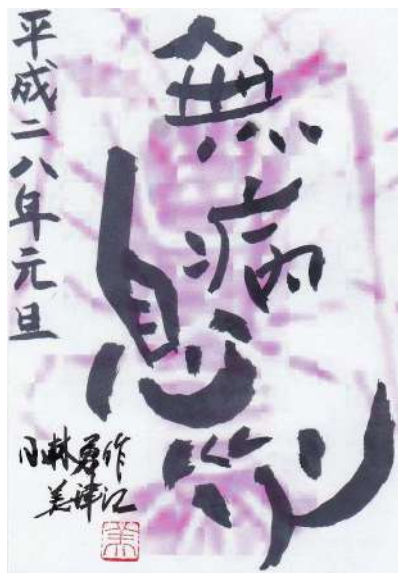 無病息災
平成二八年元旦
小林勇作
美津江
美